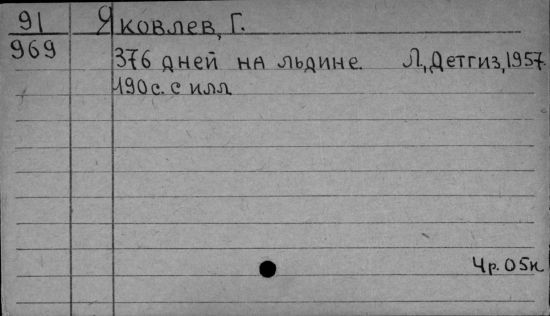 91 Яковлев, Г.
969
376 дней на льдине. Л, Детгиз, 1957.
190с. с илл
Чр. 05к